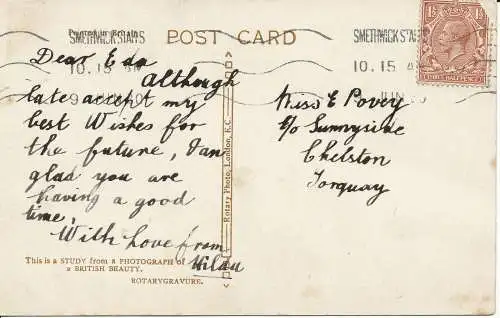 SMETHWICK STAFFS
POST CARD
SMETHWICK STAFFS
10.15 AM
10.15 A
9 JUN 20
JUN
Dear Eda
Although
late accept my
best Wishes for
the future, I am
glad you are
having a good
time,
With love from
Hilda
Miss E Povey
c/o Sunnyside
Chelston
Torquay
Rotary Photo, London, E.C.
This is a STUDY from a PHOTOGRAPH of
a BRITISH BEAUTY.
ROTARYGRAVURE.